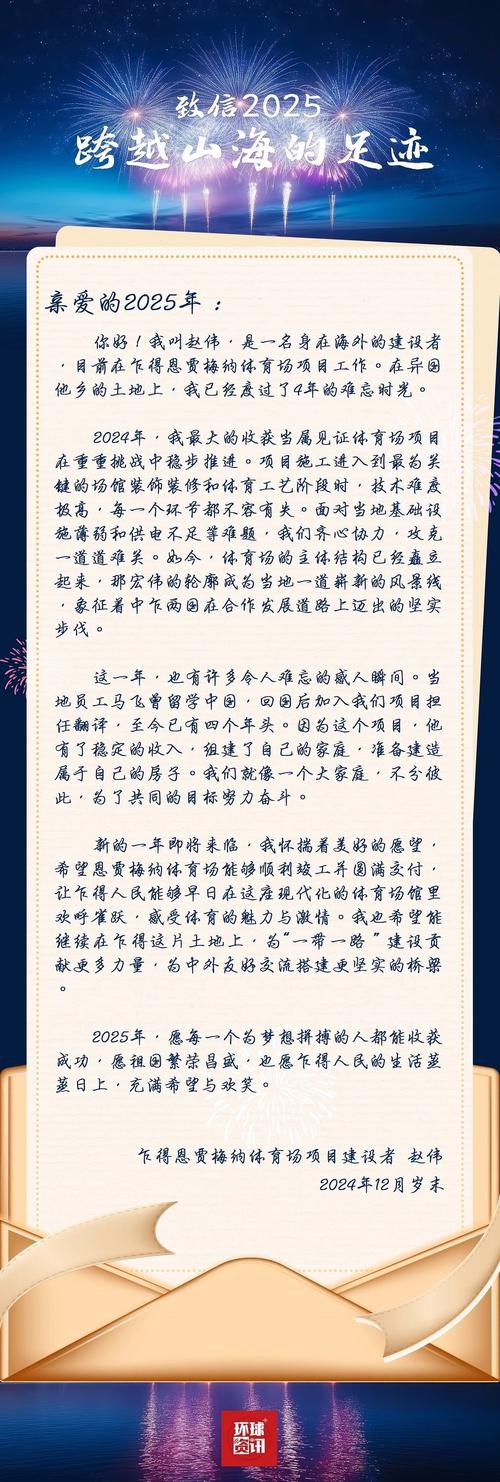 致信2025
跨越山海的足迹
亲爱的2025年：
你好！我叫赵伟，是一名身在海外的建设者
，目前在乍得恩贾梅纳体育场项目工作。在异国
他乡的土地上，我已经度过了4年的难忘时光。
2024年，我最大的收获当属见证体育场项目
在重重挑战中稳步推进。项目施工进入到最为关
键的场馆装饰装修和体育工艺阶段时，技术难度
极高，每一个环节都不容有失。面对当地基础设
施薄弱和供电不足等难题，我们齐心协力，攻克
一道道难关。如今，体育场的主体结构已经矗立
起来，那宏伟的轮廓成为当地一道崭新的风景线
，象征着中乍两国在合作发展道路上迈出的坚实
步伐。
这一年，也有许多令人难忘的感人瞬间。当
地员工马飞曾留学中国，回国后加入我们项目担
任翻译，至今已有四个年头。因为这个项目，他
有了稳定的收入，组建了自己的家庭，准备建造
属于自己的房子。我们就像一个大家庭，不分彼
此，为了共同的目标努力奋斗。
新的一年即将来临，我怀揣着美好的愿望，
希望恩贾梅纳体育场能够顺利竣工并圆满交付，
让乍得人民能够早日在这座现代化的体育场馆里
欢呼雀跃，感受体育的魅力与激情。我也希望能
继续在乍得这片土地上，为“一带一路”建设贡
献更多力量，为中外友好交流搭建更坚实的桥梁
。
2025年，愿每一个为梦想拼搏的人都能收获
成功，愿祖国繁荣昌盛，也愿乍得人民的生活蒸
蒸日上，充满希望与欢笑。
乍得恩贾梅纳体育场项目建设者 赵伟
2024年12月岁末
环球
资讯